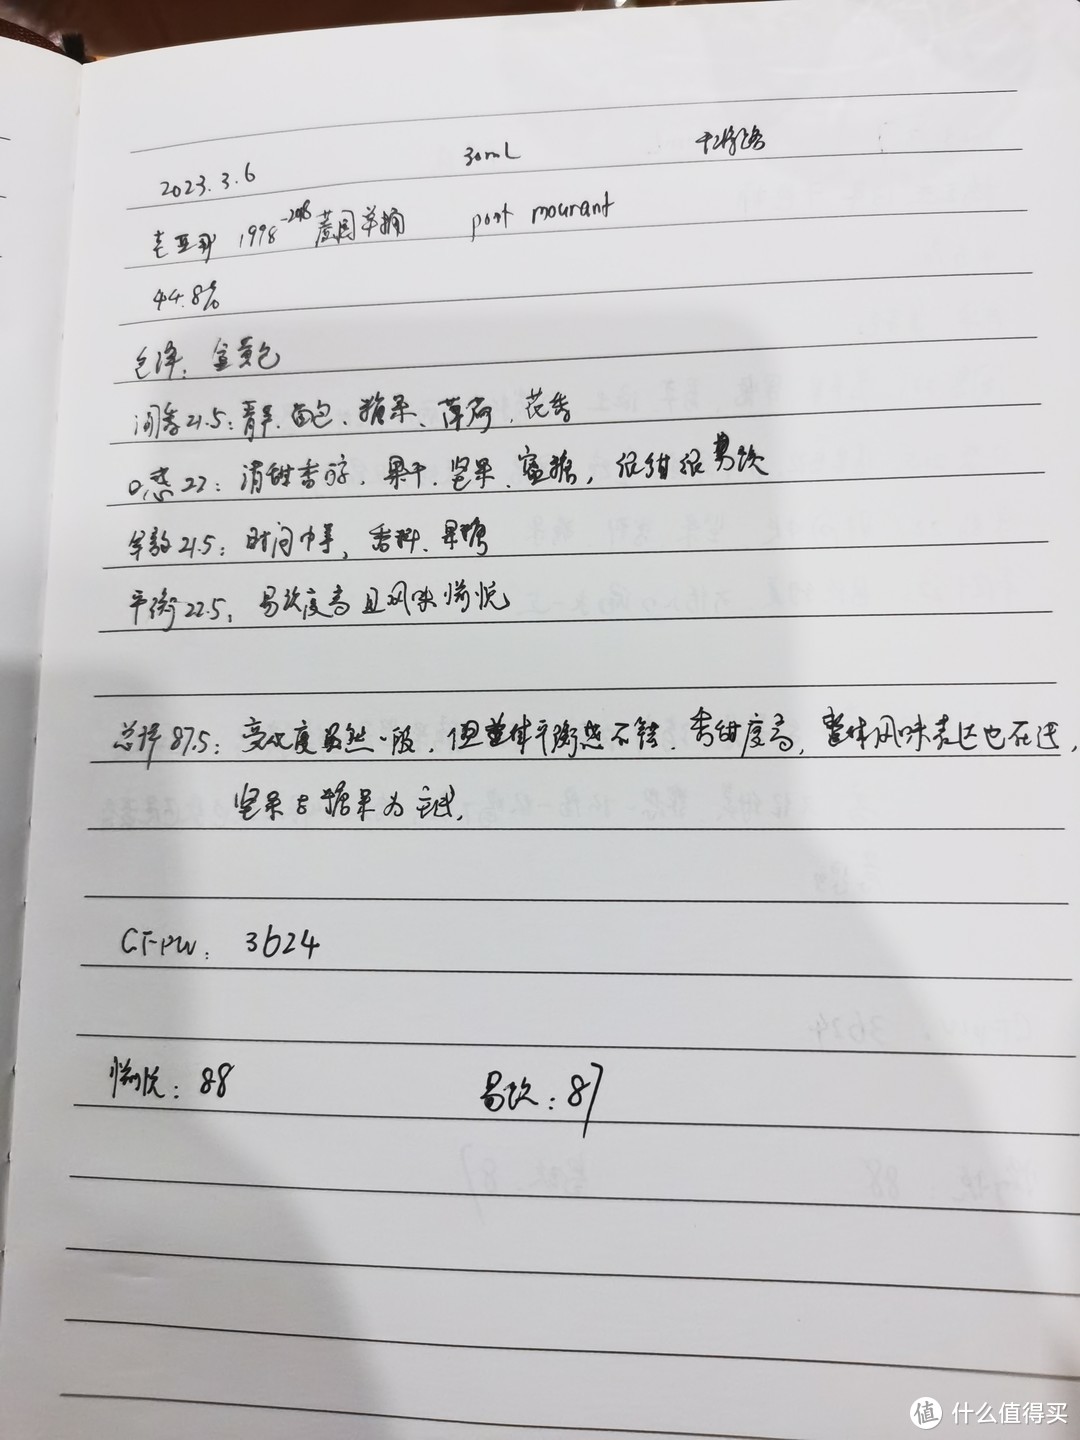 2023.3.6 30mL
圭亚那 1998-2018 蔗园单桶 port mourant
44.8%
色泽：金黄色
闻香21.5：青草、面包、糖果、薄荷、花香
口感22：清甜香醇、果干、坚果、蜜糖，很甜很易饮
尾韵21.5：时间中等，香料、果糖
平衡22.5：易饮度高且风味愉悦
总评87.5：变化度虽然一般，但整体平衡感不错、香甜度高，整体风味表达也在线，
坚果与糖果为主线，
CFPW：3624
愉悦：88 易饮：87
值 什么值得买